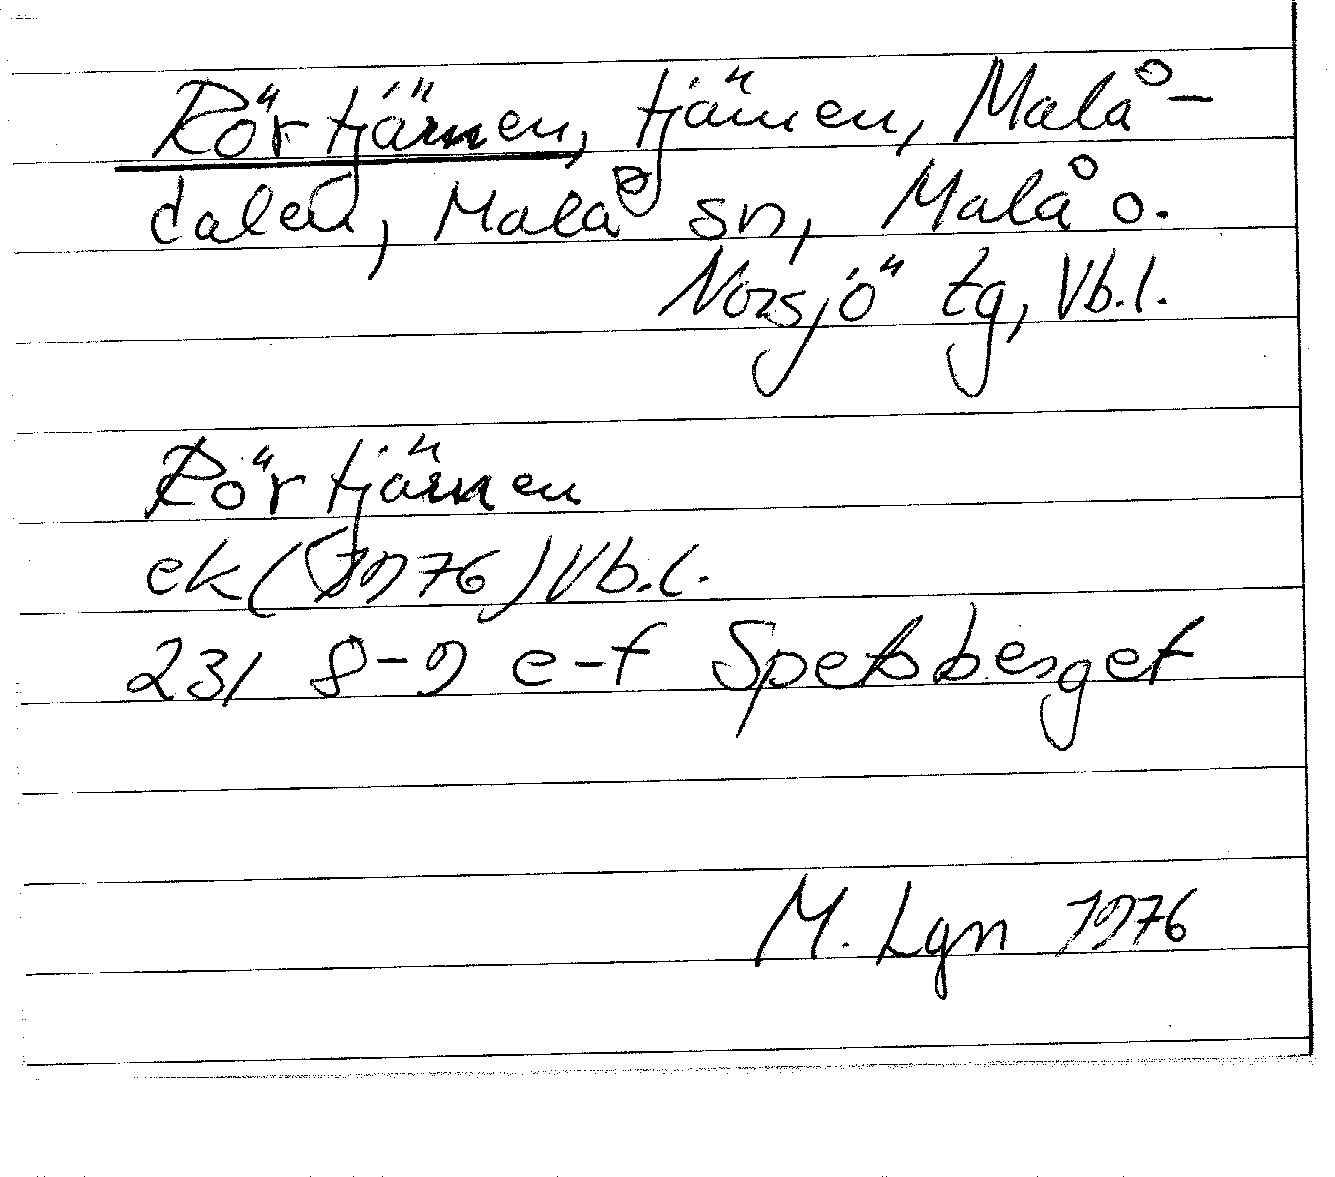 Rörtjärnen, tjärnen, Malå-
dalen, Malå sn, Malå o.
Norsjö tg, Vb.l.
Rörtjärnen
ek (1976) Vb.l.
23I 8-9 e-f Spetsberget
M. Lgn 1976